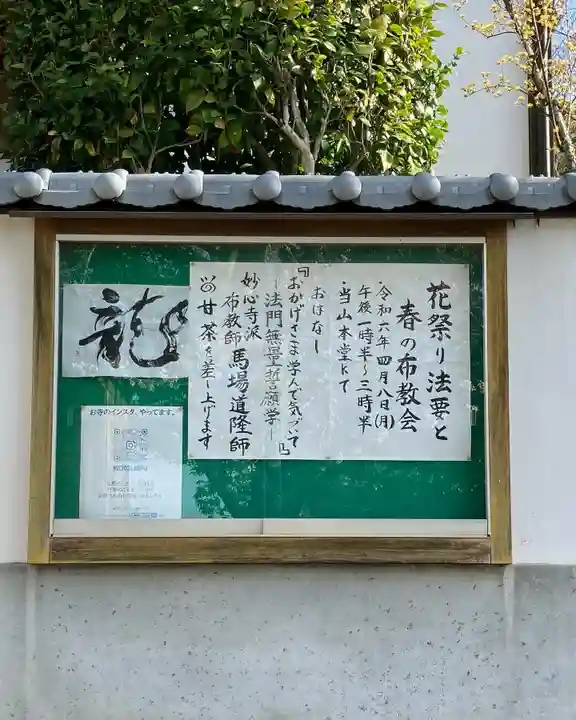 花祭り法要と
春の布教会
・令和六年四月八日(月)
午後一時半〜三時半
・当山本堂にて
おはなし
『おかげさま 学んで気づいて
−法門無量誓願学−』
妙心寺派
布教師 馬場道隆師
◎甘茶を差し上げます
龍
お寺のインスタ、やってます。